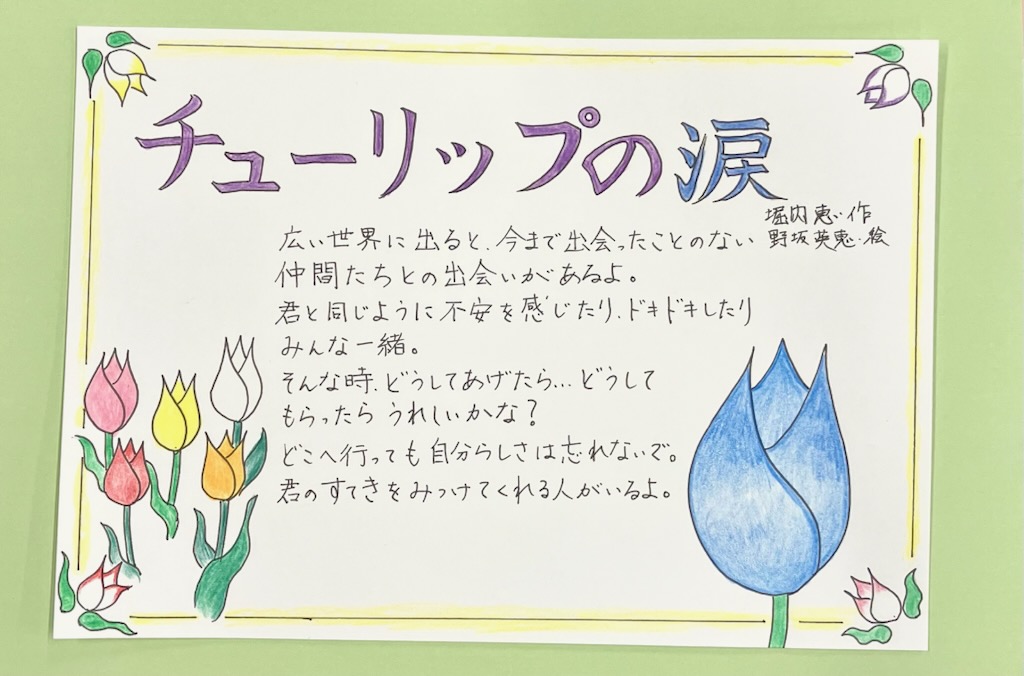 チューリップの涙
堀内恵・作
野坂英恵・絵
広い世界に出ると、今まで出会ったことのない
仲間たちとの出会いがあるよ。
君と同じように不安を感じたり、ドキドキしたり
みんな一緒。
そんな時、どうしてあげたら…どうして
もらったらうれしいかな？
どこへ行っても自分らしさは忘れないで。
君のすてきをみつけてくれる人がいるよ。